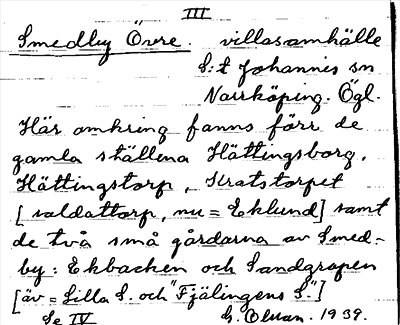 III
Smedby Övre villasamhälle
S:t Johannis sn
Norrköping. Ögl.
Här omkring fanns förr de
gamla ställena Hättingsborg,
Hättingstorp, Kratstorpet
[soldattorp, nu = Eklund] samt
de två små gårdarna av Smed-
by: Ekbacken och Sandgropen
[äv = Lilla S. och "Fjälingens S."]
Se IV G. Elman. 1939.